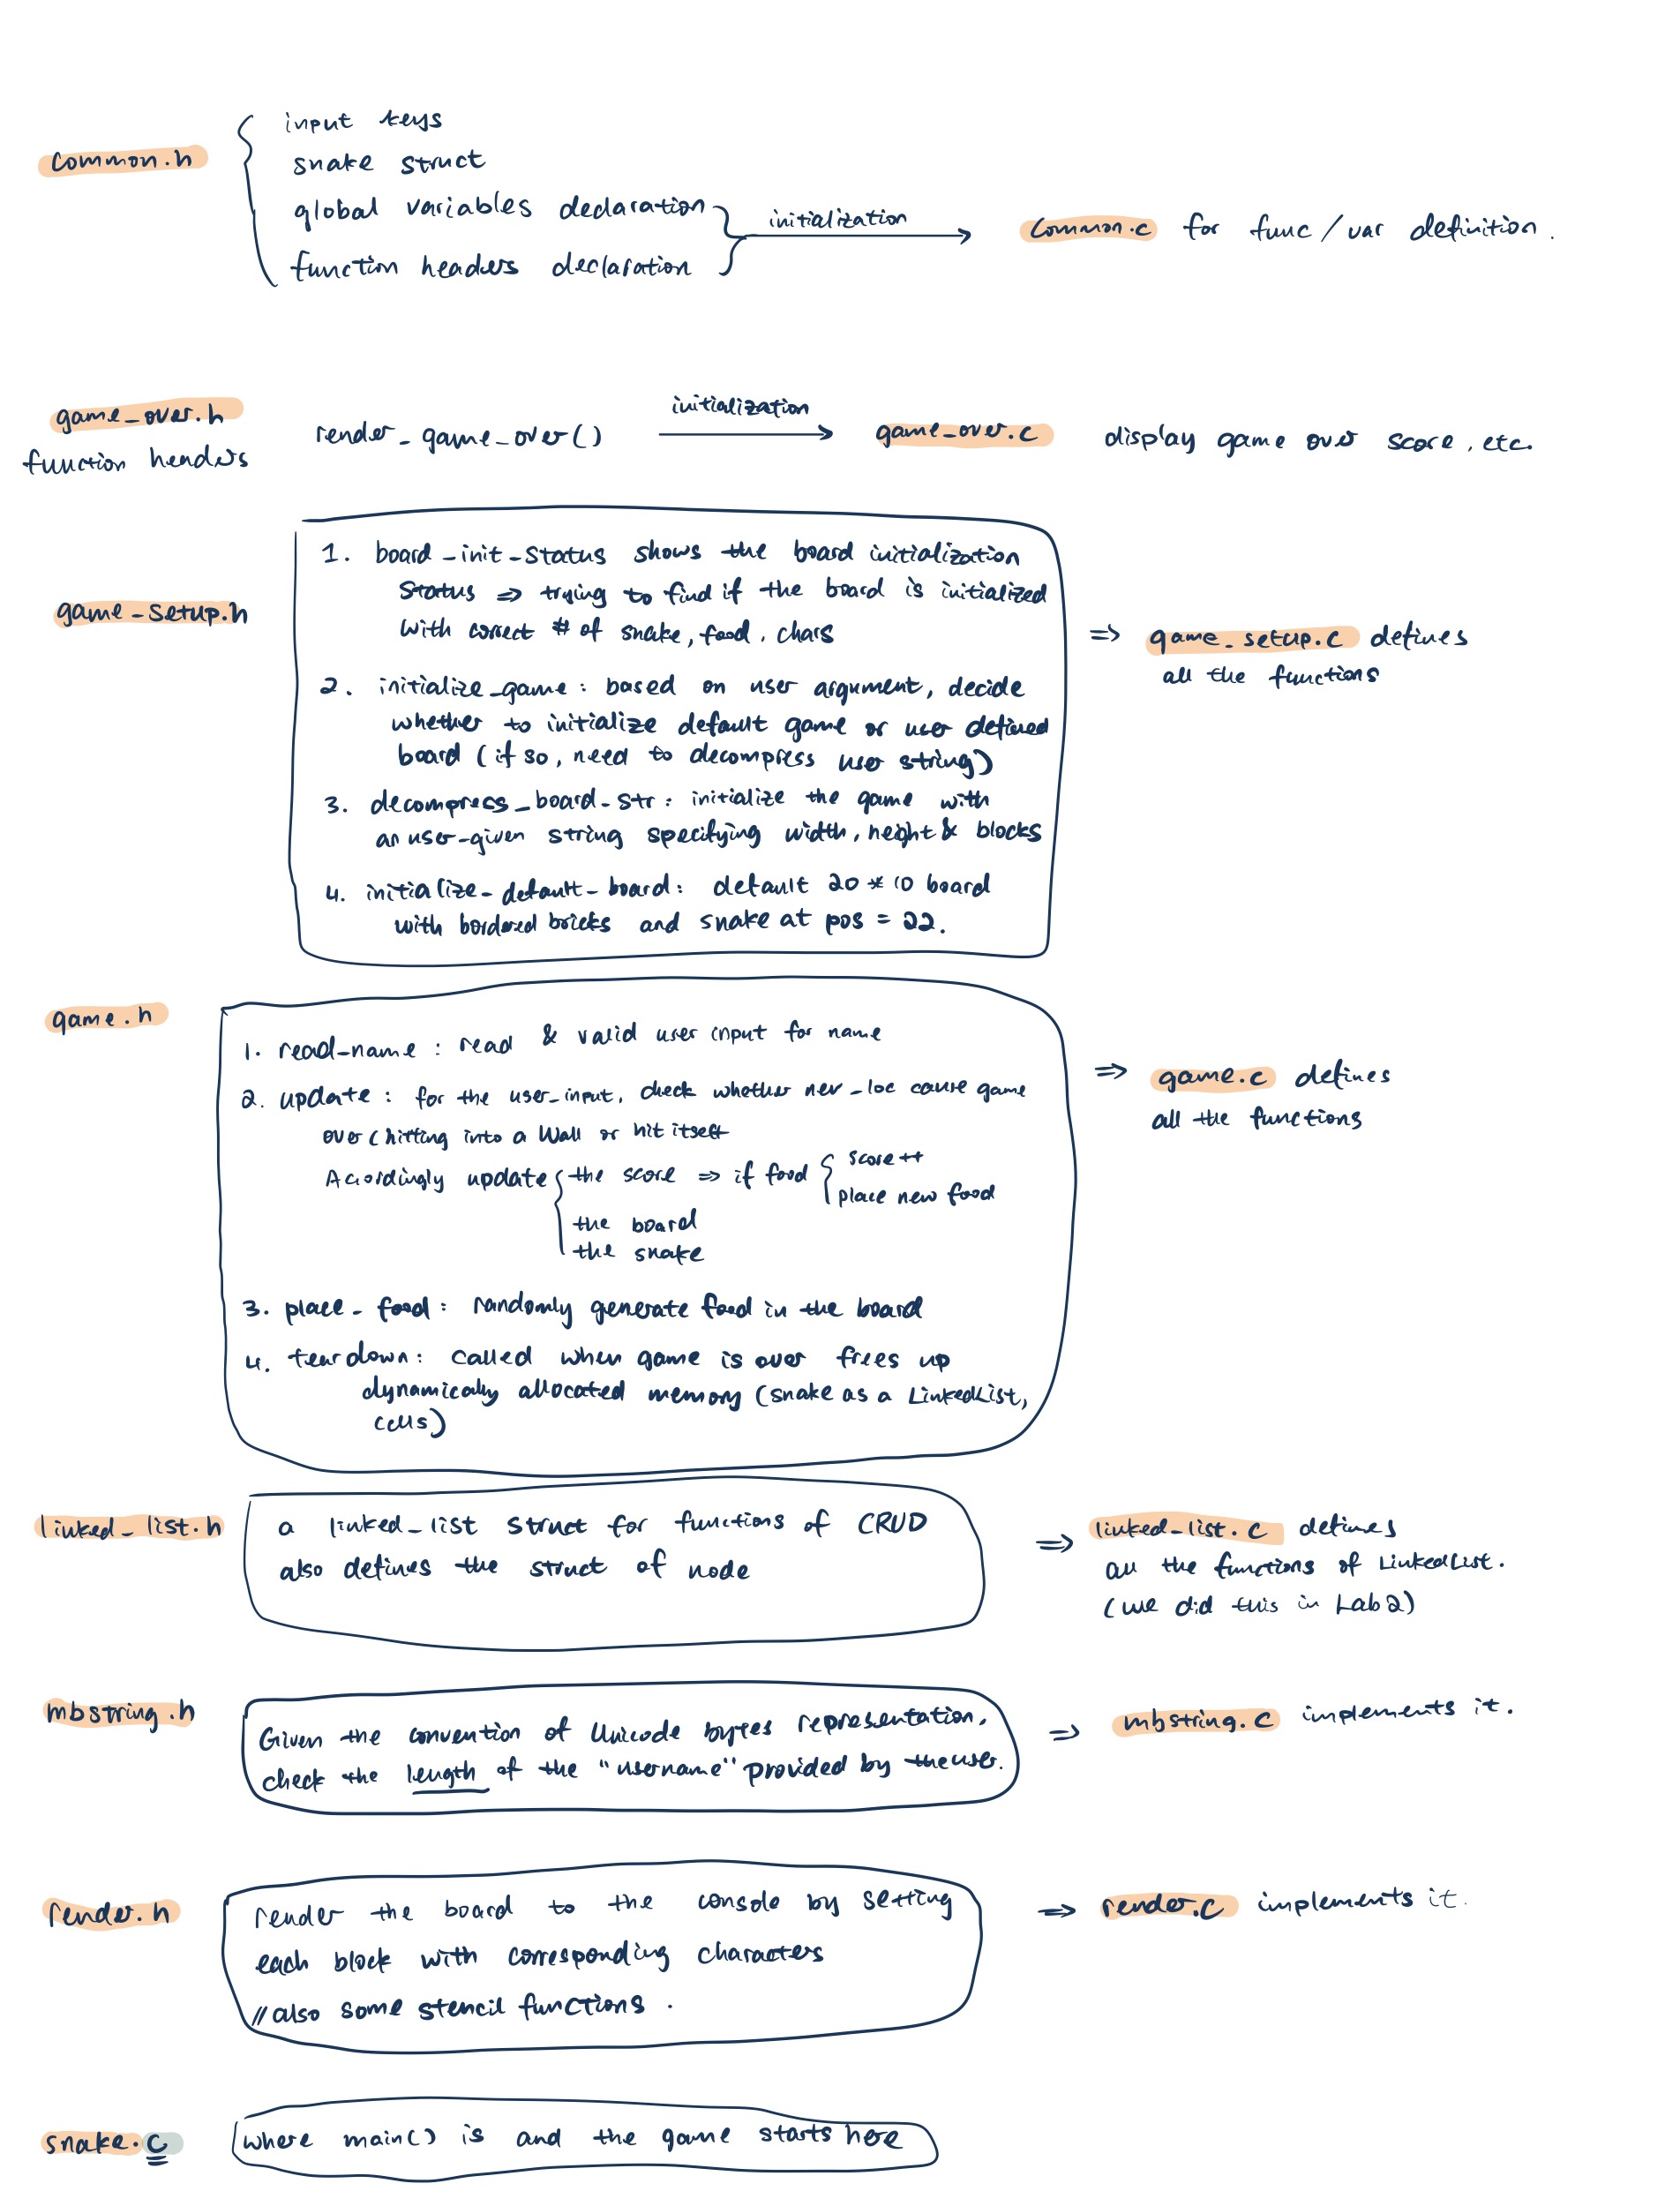 common.h
input keys
snake struct
global variables declaration
function headers declaration
initialization
common.c for func/var definition.
game_over.h
function headers
render_game_over()
initialization
game_over.c display game over score, etc.
game_setup.h
1. board_init_status shows the board initialization
status => trying to find if the board is initialized
with correct # of snake, food, chars
2. initialize_game: based on user argument, decide
whether to initialize default game or user defined
board (if so, need to decompress user string)
3. decompress_board_str: initialize the game with
an user-given string specifying width, height & blocks
4. initialize_default_board: default 20 * 10 board
with bordered bricks and snake at pos = 22.
=> game_setup.c defines
all the functions
game.h
1. read_name: read & valid user input for name
2. update: for the user_input, check whether new_loc cause game
over (hitting into a wall or hit itself
Acordingly update
the score => if food
score++
place new food
the board
the snake
3. place_food: randomly generate food in the board
4. teardown: called when game is over frees up
dynamically allocated memory (snake as a LinkedList,
cells)
=> game.c defines
all the functions
linked_list.h
a linked_list struct for functions of CRUD
also defines the struct of node
=> linked_list.c defines
all the functions of LinkedList.
(we did this in Lab2)
mbstring.h
Given the convention of Unicode bytes representation,
check the length of the "username" provided by the user.
=> mbstring.c implements it.
render.h
render the board to the console by setting
each block with corresponding characters
// also some stencil functions.
=> render.c implements it.
snake.c
where main() is and the game starts here